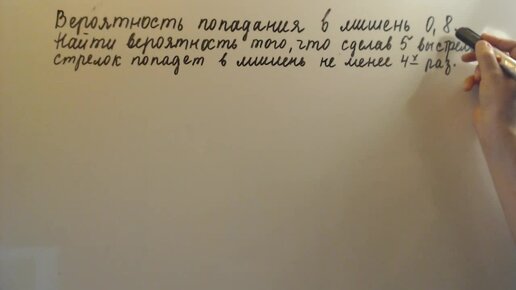 Вероятность попадания в мишень 0,8
Найти вероятность того, что сделав 5 выстрел
стрелок попадет в мишень не менее 4х раз.